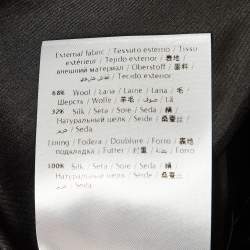 External fabric / Tessuto esterno / Tissu
extérieur / Tejido exterior / 表地 /
внешний материал / Oberstoff / 面料 /
/ Tejido exterior
68% Wool / Lana / Laine / Lana / 毛 /
Шерсть / Wolle / 羊毛 / صوف / Lã
32% Silk / Seta / Soie / Seda / 絹 /
Натуральный шелк / Seide / 桑蚕丝
/ Seda
Lining / Fodera / Doublure / Forro / 裏地 /
подкладка / Futter / 衬里 / / Forro
100% Silk / Seta / Soie / Seda / 絹 /
Натуральный шелк / Seide / 桑蚕丝
/ Seda